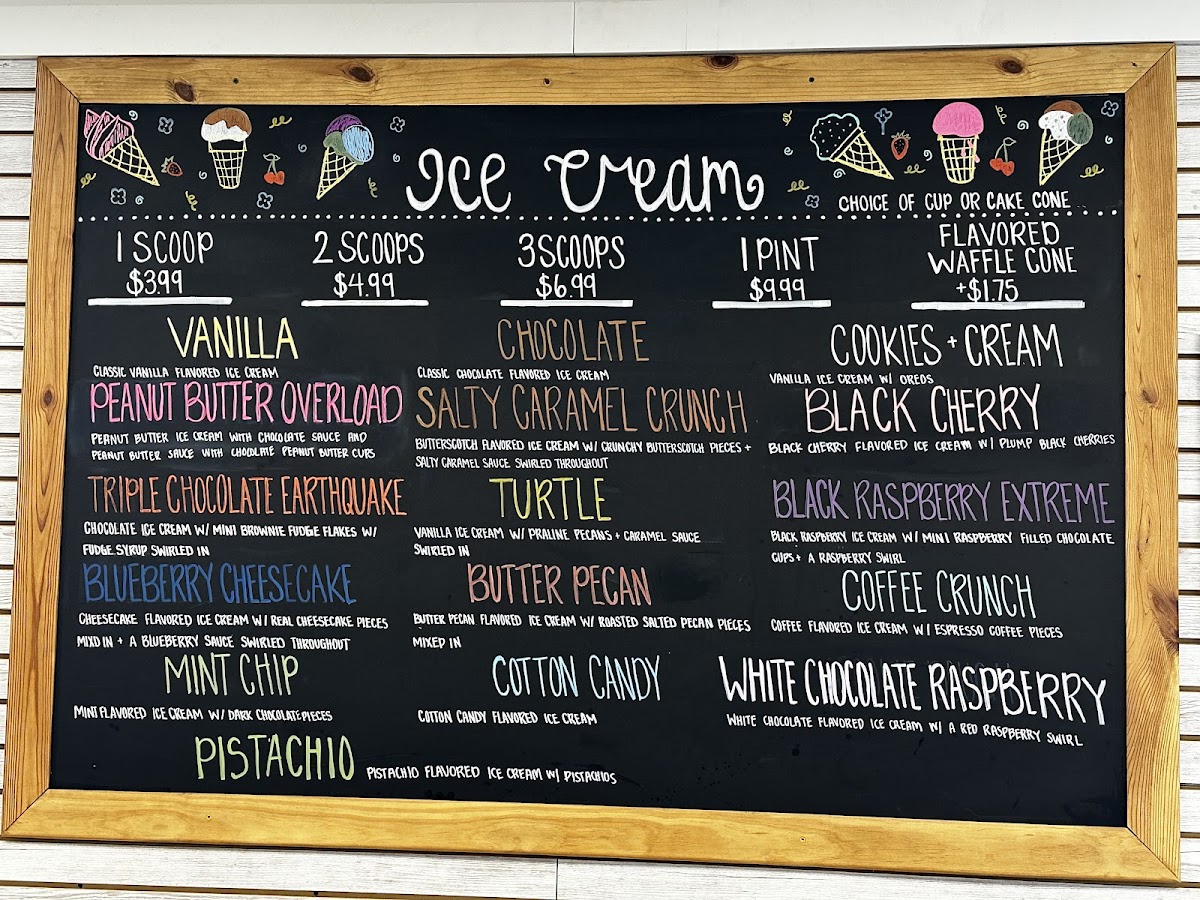 Ice Cream
CHOICE OF CUP OR CAKE CONE
1 SCOOP
$3.99
2 SCOOPS
$4.99
3 SCOOPS
$6.99
1 PINT
$9.99
FLAVORED
WAFFLE CONE
+$1.75
VANILLA
CLASSIC VANILLA FLAVORED ICE CREAM
CHOCOLATE
CLASSIC CHOCOLATE FLAVORED ICE CREAM
COOKIES + CREAM
VANILLA ICE CREAM W/ OREOS
PEANUT BUTTER OVERLOAD
PEANUT BUTTER ICE CREAM WITH CHOCOLATE SAUCE AND
PEANUT BUTTER SAUCE WITH CHOCOLATE PEANUT BUTTER CUPS
SALTY CARAMEL CRUNCH
BUTTERSCOTCH FLAVORED ICE CREAM W/ CRUNCHY BUTTERSCOTCH PIECES +
SALTY CARAMEL SAUCE SWIRLED THROUGHOUT
BLACK CHERRY
BLACK CHERRY FLAVORED ICE CREAM W/ PLUMP BLACK CHERRIES
TRIPLE CHOCOLATE EARTHQUAKE
CHOCOLATE ICE CREAM W/ MINI BROWNIE FUDGE FLAKES W/
FUDGE SYRUP SWIRLED IN
TURTLE
VANILLA ICE CREAM W/ PRALINE PECANS + CARAMEL SAUCE
SWIRLED IN
BLACK RASPBERRY EXTREME
BLACK RASPBERRY ICE CREAM W/ MINI RASPBERRY FILLED CHOCOLATE
CUPS + A RASPBERRY SWIRL
BLUEBERRY CHEESECAKE
CHEESECAKE FLAVORED ICE CREAM W/ REAL CHEESECAKE PIECES
MIXD IN + A BLUEBERRY SAUCE SWIRLED THROUGHOUT
BUTTER PECAN
BUTTER PECAN FLAVORED ICE CREAM W/ ROASTED SALTED PECAN PIECES
MIXED IN
COFFEE CRUNCH
COFFEE FLAVORED ICE CREAM W/ ESPRESSO COFFEE PIECES
MINT CHIP
MINI FLAVORED ICE CREAM W/ DARK CHOCOLATE PIECES
COTTON CANDY
COTTON CANDY FLAVORED ICE CREAM
WHITE CHOCOLATE RASPBERRY
WHITE CHOCOLATE FLAVORED ICE CREAM W/ A RED RASPBERRY SWIRL
PISTACHIO
PISTACHIO FLAVORED ICE CREAM W/ PISTACHIOS